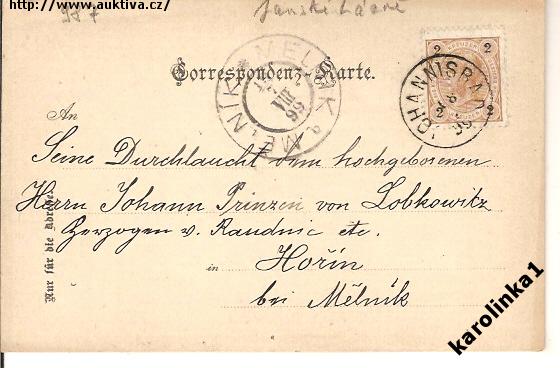 http://www.auktiva.cz/
Correspondenz-Karte.
MELNIK * MĚLNÍK
VIII
99
JOHANNISBAD
99
2 KREUZER 2
2 2
An
Seine Durchlaucht dem hochgeborenen
Herrn Johann Prinzen von Lobkowitz
Herzogen v. Raudnic etc.
in Hořín
bei Mělník
Nur für die Adresse
karolinka1